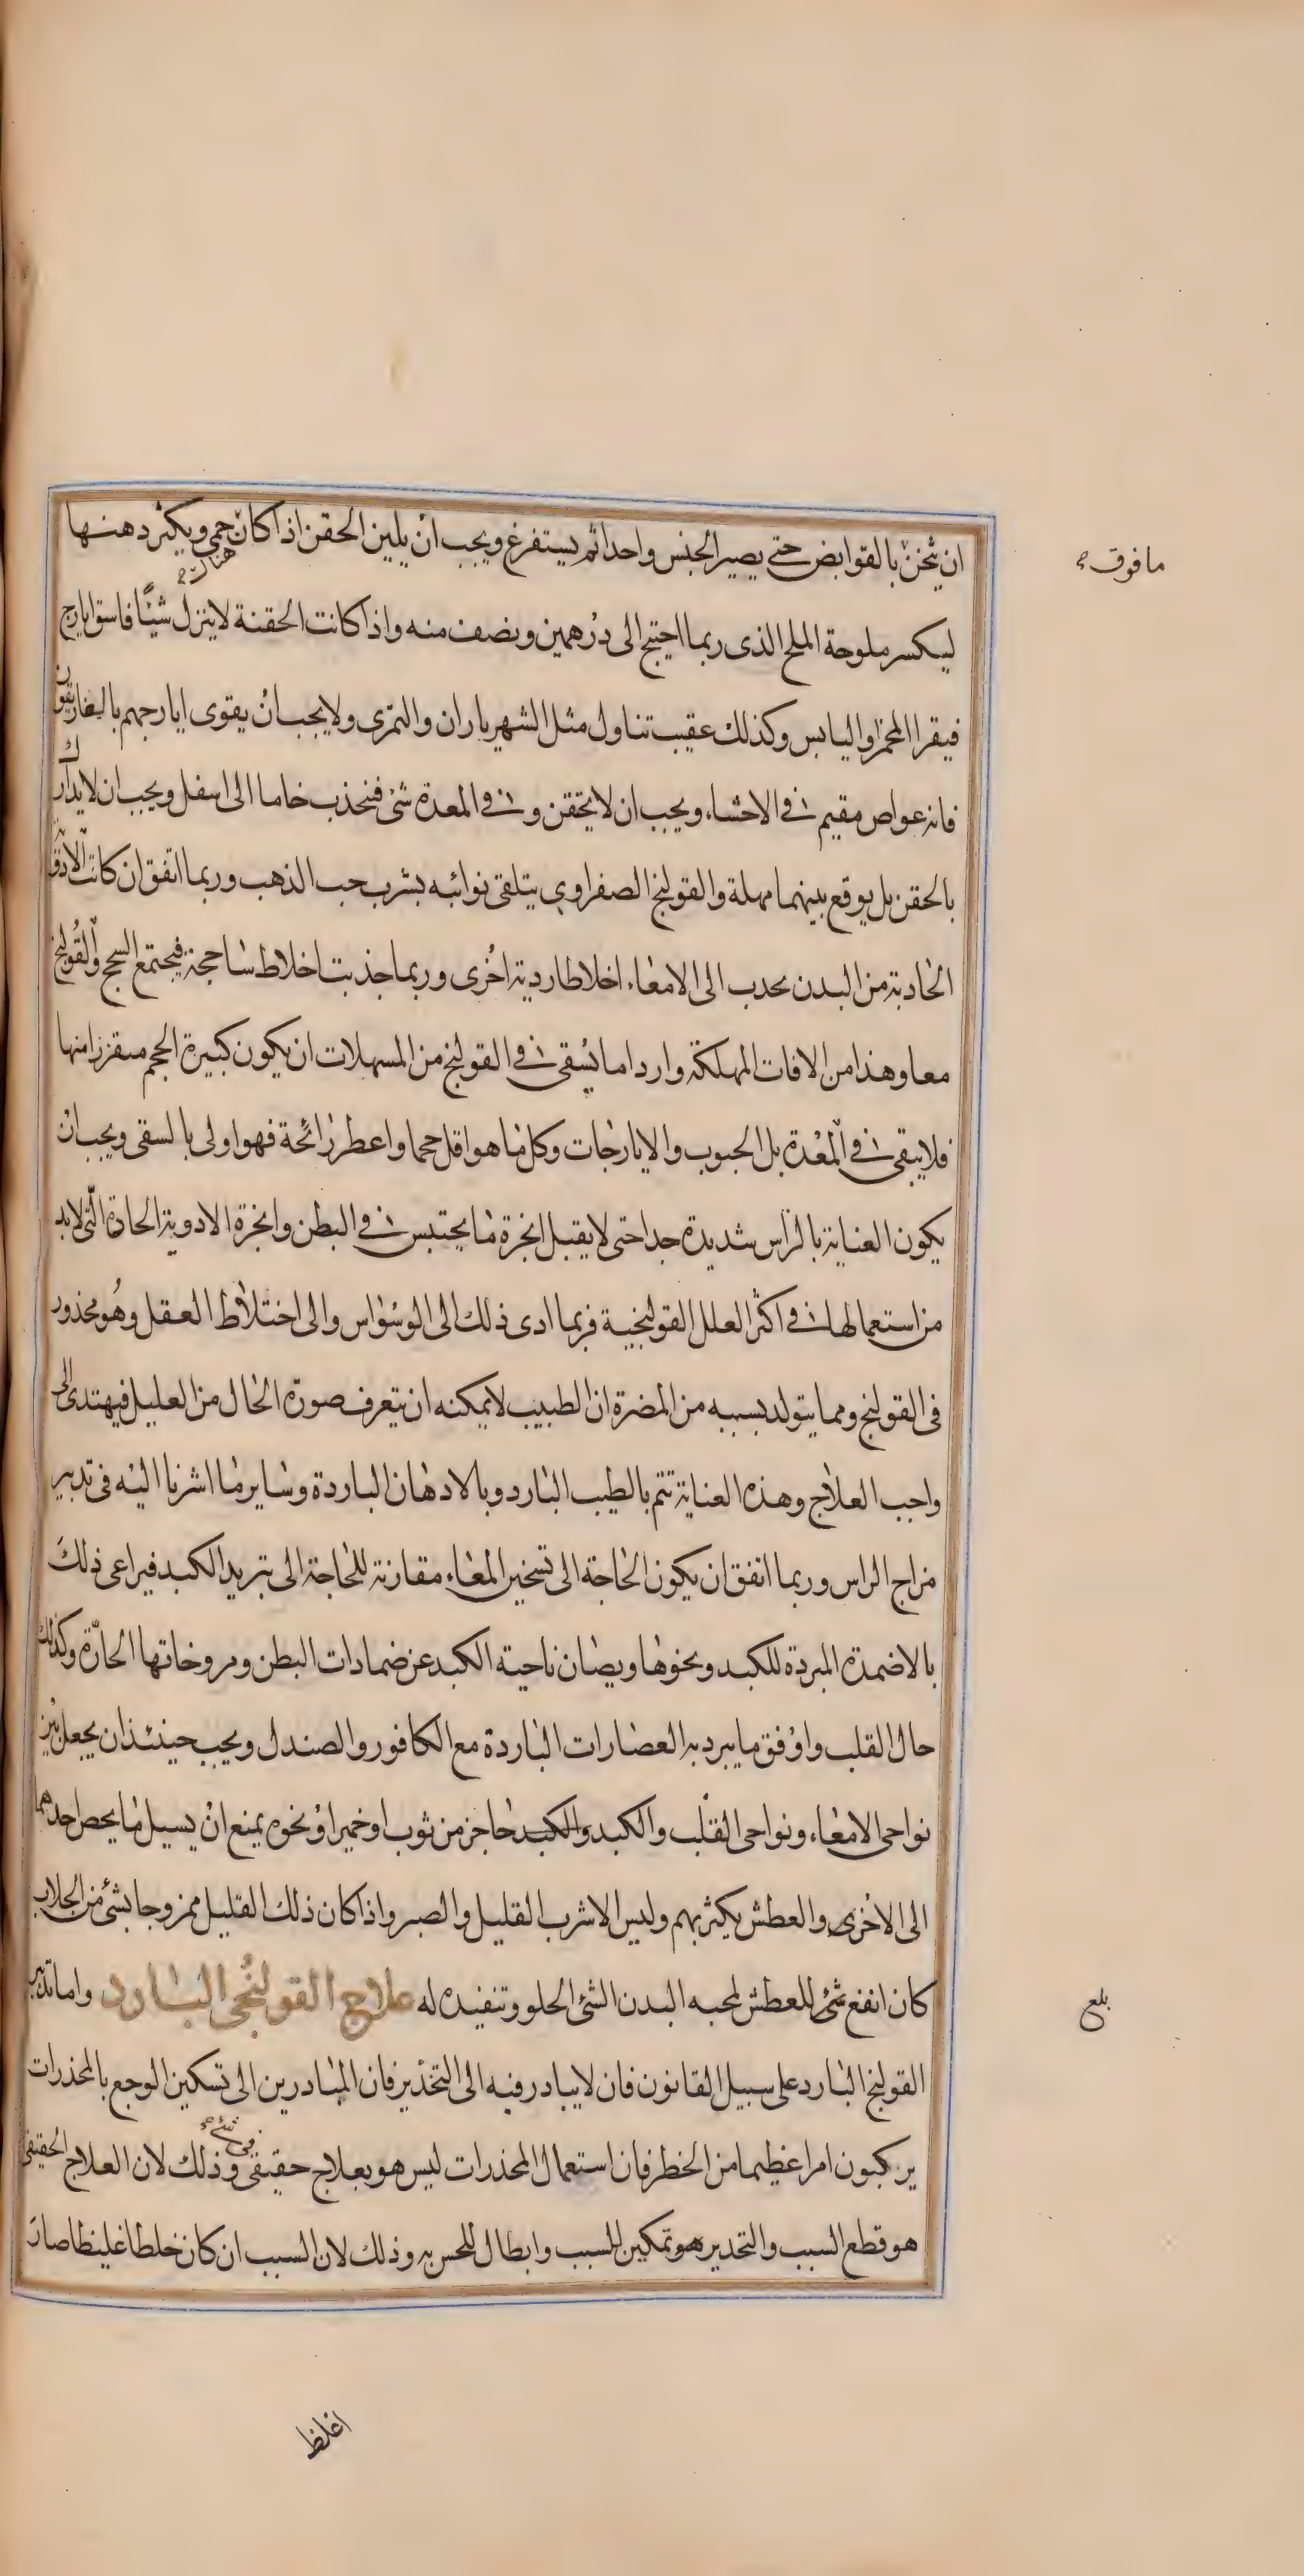 ان يثخن بالقوابض حتى يصير الجنس واحدا ثم يستفرغ ويجب ان يلين الحقن اذا كان حمى ويكثر دهنها
هناك
ما فوق
ليكسر ملوحة الملح الذى ربما احتيج الى درهمين ونصف منه واذا كانت الحقنة لا ينزل شيئا فاسق ايارج
فيقرا المخمر او اليابس وكذلك عقيب تناول مثل الشهرياران والتمرى ولا يجب ان يقوى ايارجهم بالغاريقون
فانه غواص مقيم فى الاحشاء ويجب ان لا يحقن و فى المعدة شئ فنجذب خاما الى اسفل ويجب ان لا يدارك
بالحقن بل يوقع بينهما مهلة والقولنج الصفراوى يتلقى نوائبه بشرب حب الذهب وربما اتفق ان كانت الادوية
الحادبة من البدن يحدب الى الامعاء اخلاطا ردية اخرى وربما جذبت اخلاط ساحجة فيجتمع السحج والقولنج
معا وهذا من الافات المهلكة واردا ما يسقى فى القولنج من المسهلات ان يكون كبيرة الحجم متقززا منها
فلا يبقى فى المعدة بل الحبوب والايارجات وكل ما هو اقل حجما واعطر رائحة فهو اولى بالسقى ويجب ان
يكون العناية بالراس شديدة جدا حتى لا يقبل ابخرة ما يحتبس فى البطن وابخرة الادوية الحادة التى لا بد
من استعمالها فى اكثر العلل القولنجية فربما ادى ذلك الى الوسواس والى اختلاط العقل وهو محذور
فى القولنج ومما يتولد بسببه من المضرة ان الطبيب لا يمكنه ان يتعرف صورة الحال من العليل فيهتدى الى
واجب العلاج وهذه العناية تتم بالطيب البارد وبالادهان الباردة وساير ما اشرنا اليه فى تدبير
مزاج الراس وربما اتفق ان يكون الحاجة الى تسخين المعاء مقارنة للحاجة الى تبريد الكبد فيراعى ذلك
بالاضمدة المبردة للكبد ونحوها ويصان ناحية الكبد عن ضمادات البطن ومروخاتها الحارة وكذلك
حال القلب واوفق ما يبرد به العصارات الباردة مع الكافور والصندل ويجب حينئذ ان يجعل بين
نواحى الامعاء ونواحى القلب والكبد والكبد حاجز من ثوب او خمير او نحوه يمنع ان يسيل ما يخص احدهما
الى الاخرى والعطش يكثر بهم وليس الا شرب القليل والصبر واذا كان ذلك القليل ممزوجا بشئ من الجلاب
كان انفع شئ للعطش لمحبه البدن الشئ الحلو وتنفيذه له علاج القولنجى البارد واما تدبير
بلغ
القولنج البارد على سبيل القانون فان لا يبادر فيه الى التخدير فان المبادرين الى تسكين الوجع بالمخدرات
يركبون امرا عظيما من الخطر فان استعمال المخدرات ليس هو بعلاج حقيقى وذلك لان العلاج الحقيقى
فى شئ
هو قطع السبب والتخدير هو تمكين للسبب وابطال للحس به وذلك لان السبب ان كان خلطا غليظا صار
اغلظ